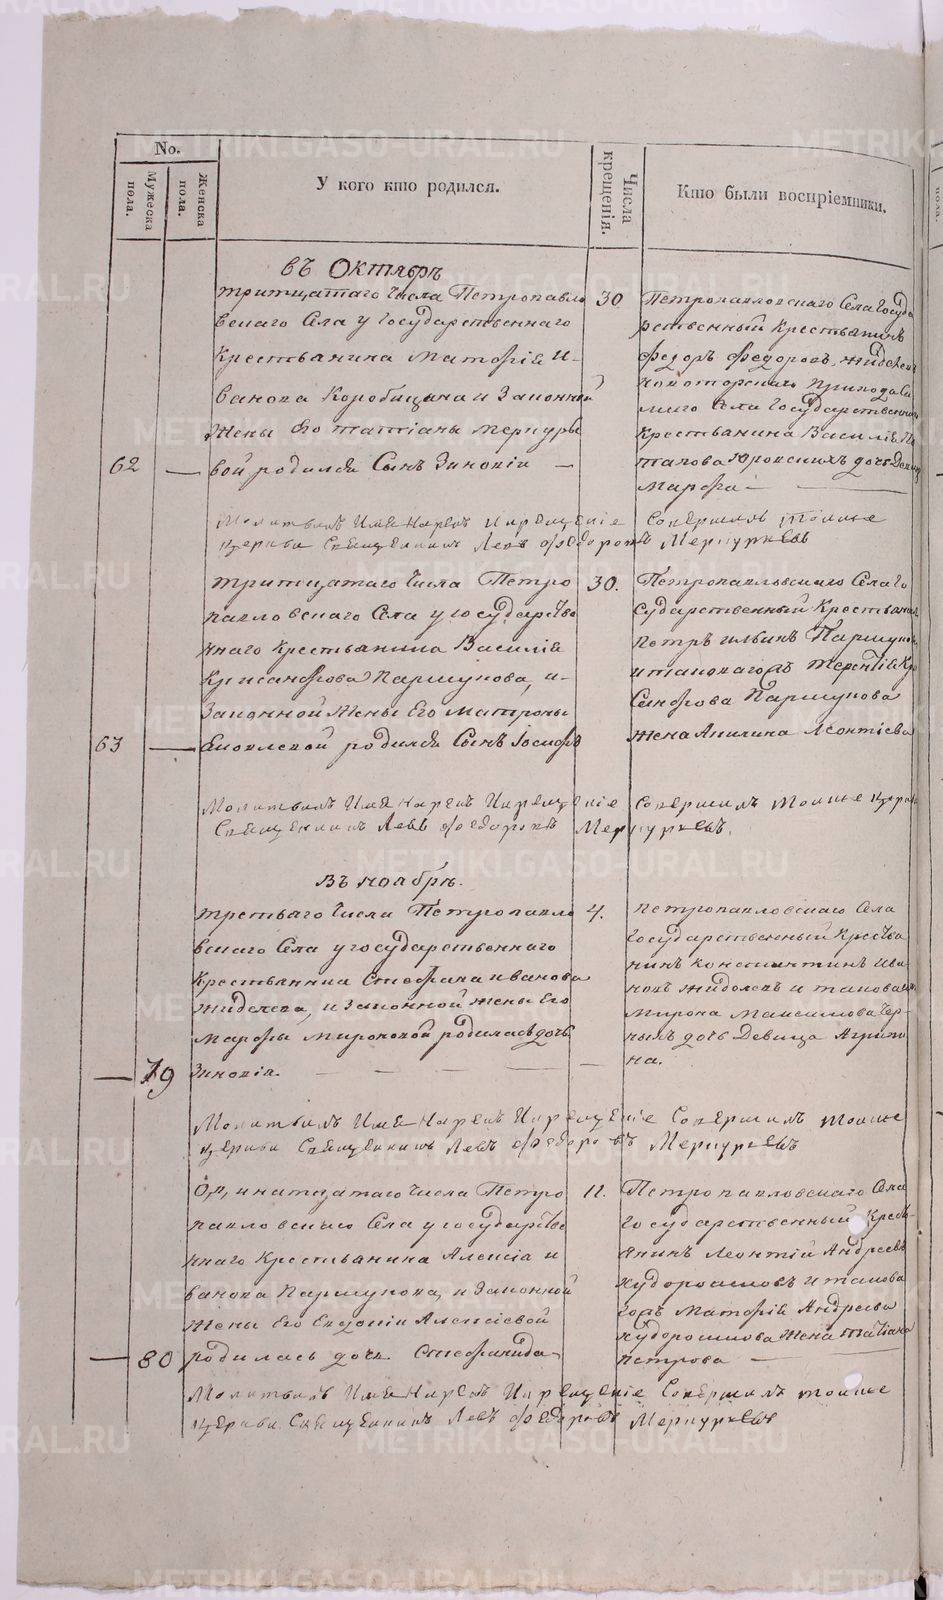 No.
Мужеска пола.
Женска пола.
У кого кто родился.
Числа крещенія.
Кто были воспріемники.
въ Октябрѣ
тритцатаго Числа Петропавло
вскаго Села у государственнаго
Крестьянина Матфѣя И-
ванова Коробицына и Законной
Жены Его татіаны меркурье
62 — вой родился Сынъ Зиновій —
30
Петропавловскаго Села Госуда
рственный Крестьянинъ
федоръ федоровъ
прихода
Села Государственнаго
Крестьянина Василія По
тапова дочь Девица
Марфа —
Молитвилъ Имя Нарекъ И Крещеніе Совершилъ тоя же
церкви Священникъ Левъ Ѳедоровъ Меркурьевъ
тритцатаго Числа Петро
павловскаго Села у государстве
ннаго Крестьянина Василія
Паршукова, и
Законной Жены Его Матроны
63 — Яковлевой родился Сынъ Іосифъ
30.
Петропавловскаго Села го
сударственный Крестьянинъ
Петръ ильинъ Паршуковъ
и таковагожъ терентія
Паршукова
жена Акилина Леонтіева
Молитвилъ Имя Нарекъ И Крещеніе Совершилъ тоя же церкви
Священникъ Левъ Ѳедоровъ Меркурьевъ.
Въ ноябрѣ.
третьяго Числа Петропавло
вскаго Села у государственнаго
Крестьянина Стефана иванова
Жиделева, и Законной жены Его
Марфы мироновой родилась дочь
— 79 Зиновія. — — — — —
4.
Петропавловскаго Села
Государственный Крестья
нинъ Константинъ Ива
новъ Жиделевъ и таковаго
Мирона Максимова Чер-
ныхъ дочь Девица Агрипи
на.
Молитвилъ Имя Нарекъ И Крещеніе Совершилъ тоя же
церкви Священникъ Левъ Ѳедоровъ Меркурьевъ
Петро
павловскаго Села у государстве
ннаго Крестьянина Алексія и
ванова Паршукова, и Законной
Жены Его Евдокіи Алексіевой
— 80 родилась дочь Стефанида
11.
Петропавловскаго Села
Государственный Кресть-
янинъ Леонтій Андреевъ
Худорошковъ и такова
гожъ Матфія Андреева
Худорошкова Жена татіана
петрова —
Молитвилъ Имя Нарекъ И Крещеніе Совершилъ тоя же
церкви Священникъ Левъ Ѳедоровъ Меркурьевъ
METRIKI.GASO-URAL.RU